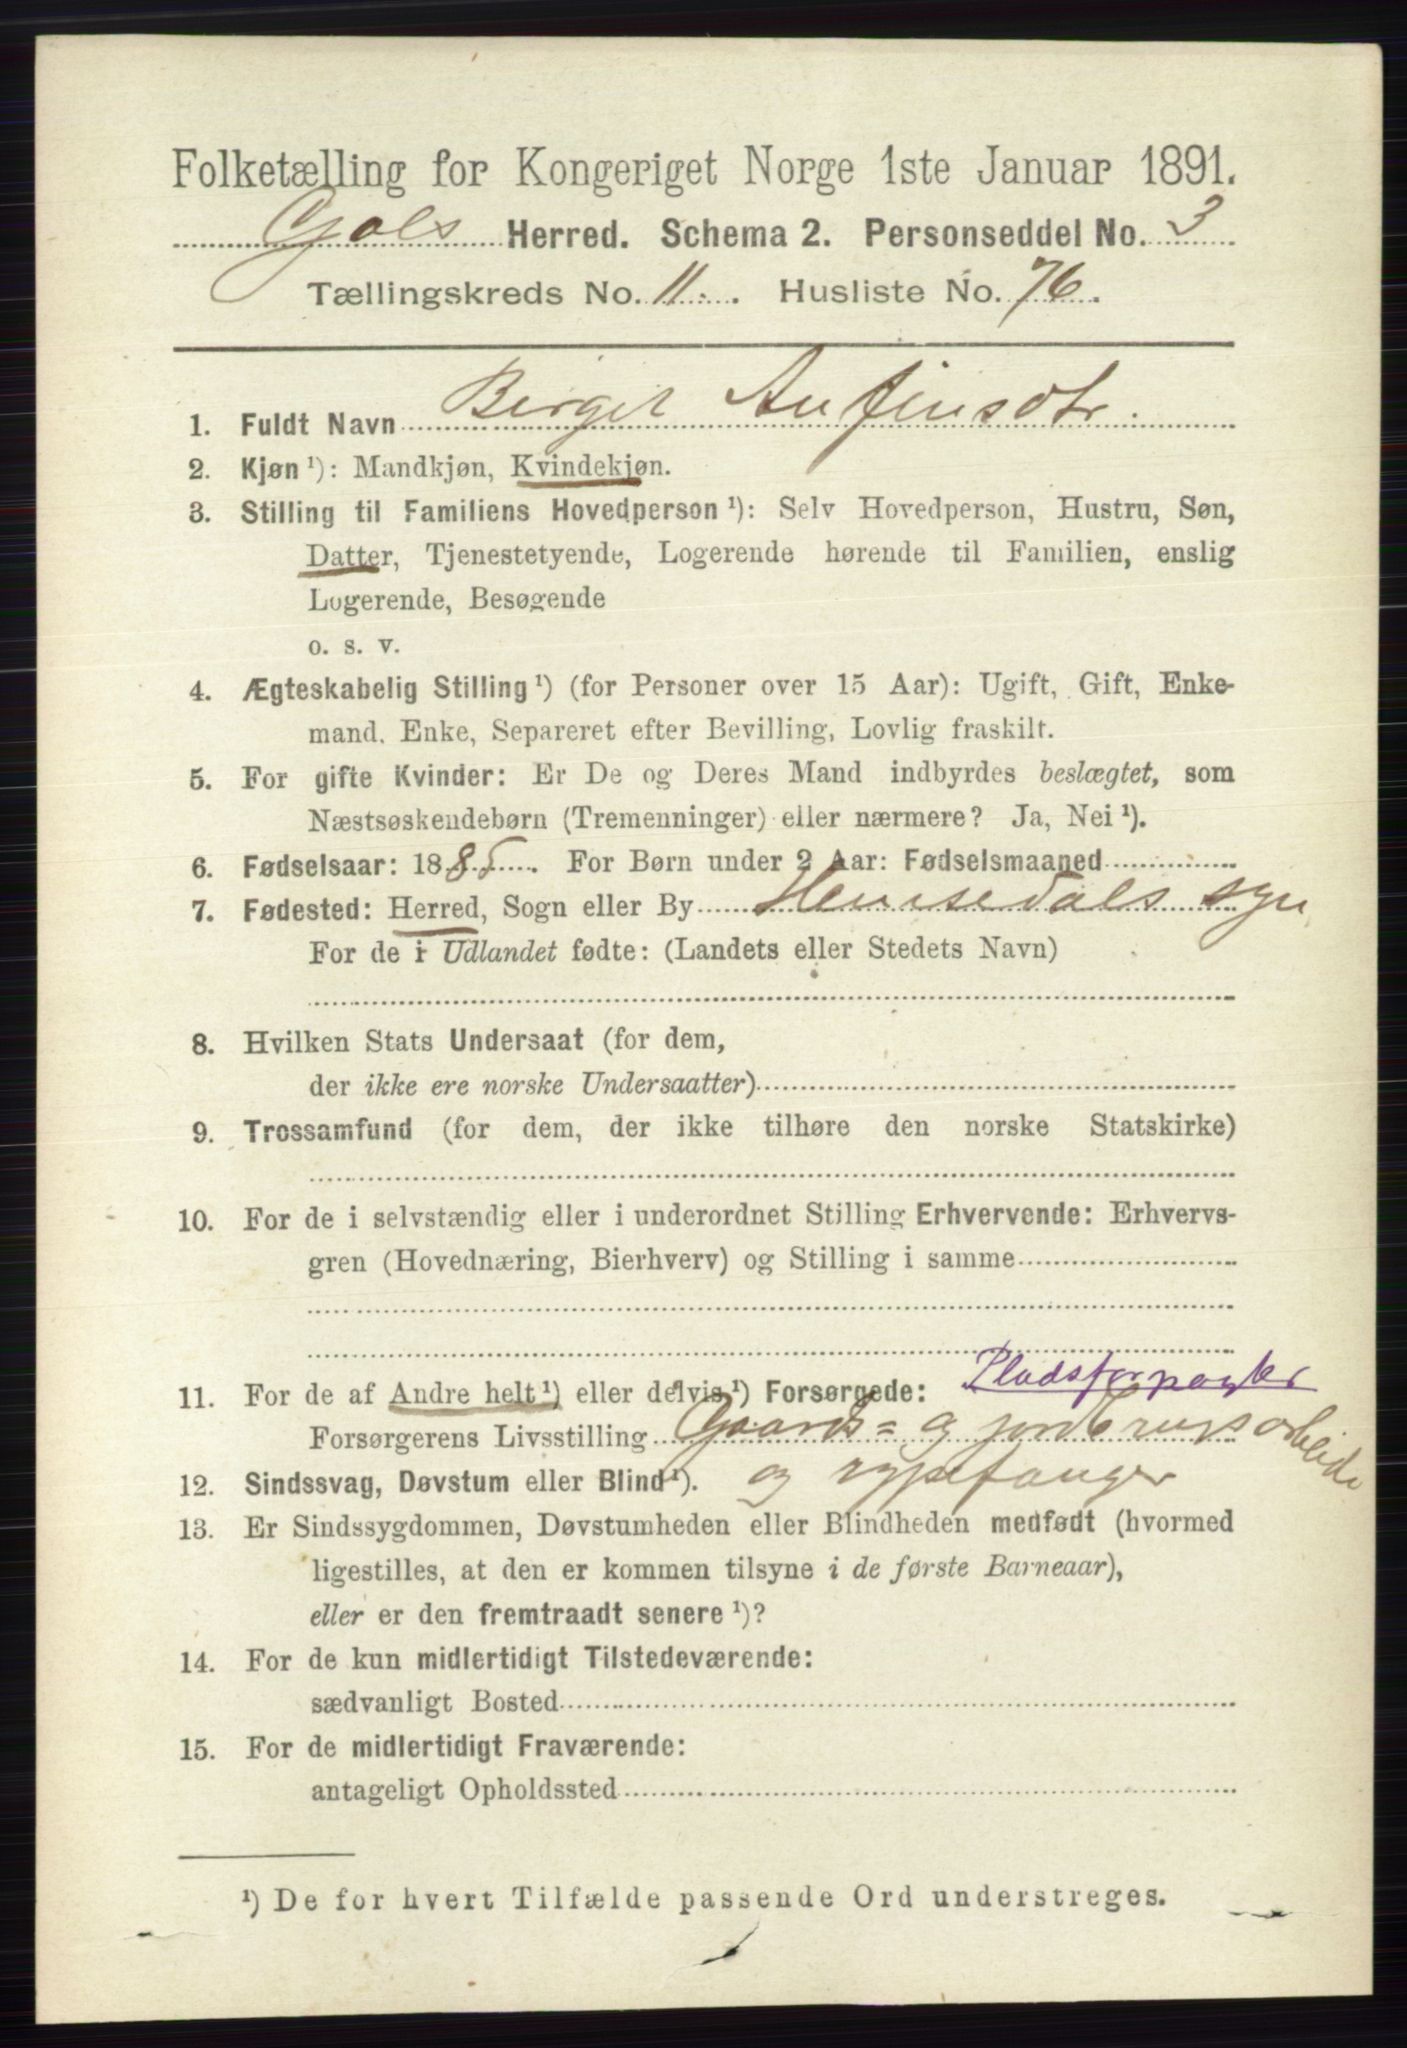 Folketælling for Kongeriget Norge 1ste Januar 1891.
Gols Herred. Schema 2. Personseddel No. 3
Tællingskreds No. 11. Husliste No. 76.
1. Fuldt Navn Birgit Anfinsdtr.
2. Kjøn ¹): Mandkjøn, Kvindekjøn.
3. Stilling til Familiens Hovedperson ¹): Selv Hovedperson, Hustru, Søn,
Datter, Tjenestetyende, Logerende hørende til Familien, enslig
Logerende, Besøgende
o. s. v.
4. Ægteskabelig Stilling ¹) (for Personer over 15 Aar): Ugift, Gift, Enke-
mand, Enke, Separeret efter Bevilling, Lovlig fraskilt.
5. For gifte Kvinder: Er De og Deres Mand indbyrdes beslægtet, som
Næstsøskendebørn (Tremenninger) eller nærmere? Ja, Nei ¹).
6. Fødselsaar: 1885. For Børn under 2 Aar: Fødselsmaaned
7. Fødested: Herred, Sogn eller By Hemsedals sgn
For de i Udlandet fødte: (Landets eller Stedets Navn)
8. Hvilken Stats Undersaat (for dem,
der ikke ere norske Undersaatter)
9. Trossamfund (for dem, der ikke tilhøre den norske Statskirke)
10. For de i selvstændig eller i underordnet Stilling Erhvervende: Erhvervs-
gren (Hovednæring, Bierhverv) og Stilling i samme
Pladsforpagter
11. For de af Andre helt ¹) eller delvis ¹) Forsørgede:
Forsørgerens Livsstilling Gaards= og jordbrugsarbeide
12. Sindssvag, Døvstum eller Blind ¹). og rypefanger
13. Er Sindssygdommen, Døvstumheden eller Blindheden medfødt (hvormed
ligestilles, at den er kommen tilsyne i de første Barneaar),
eller er den fremtraadt senere ¹)?
14. For de kun midlertidigt Tilstedeværende:
sædvanligt Bosted
15. For de midlertidigt Fraværende:
antageligt Opholdssted
¹) De for hvert Tilfælde passende Ord understreges.